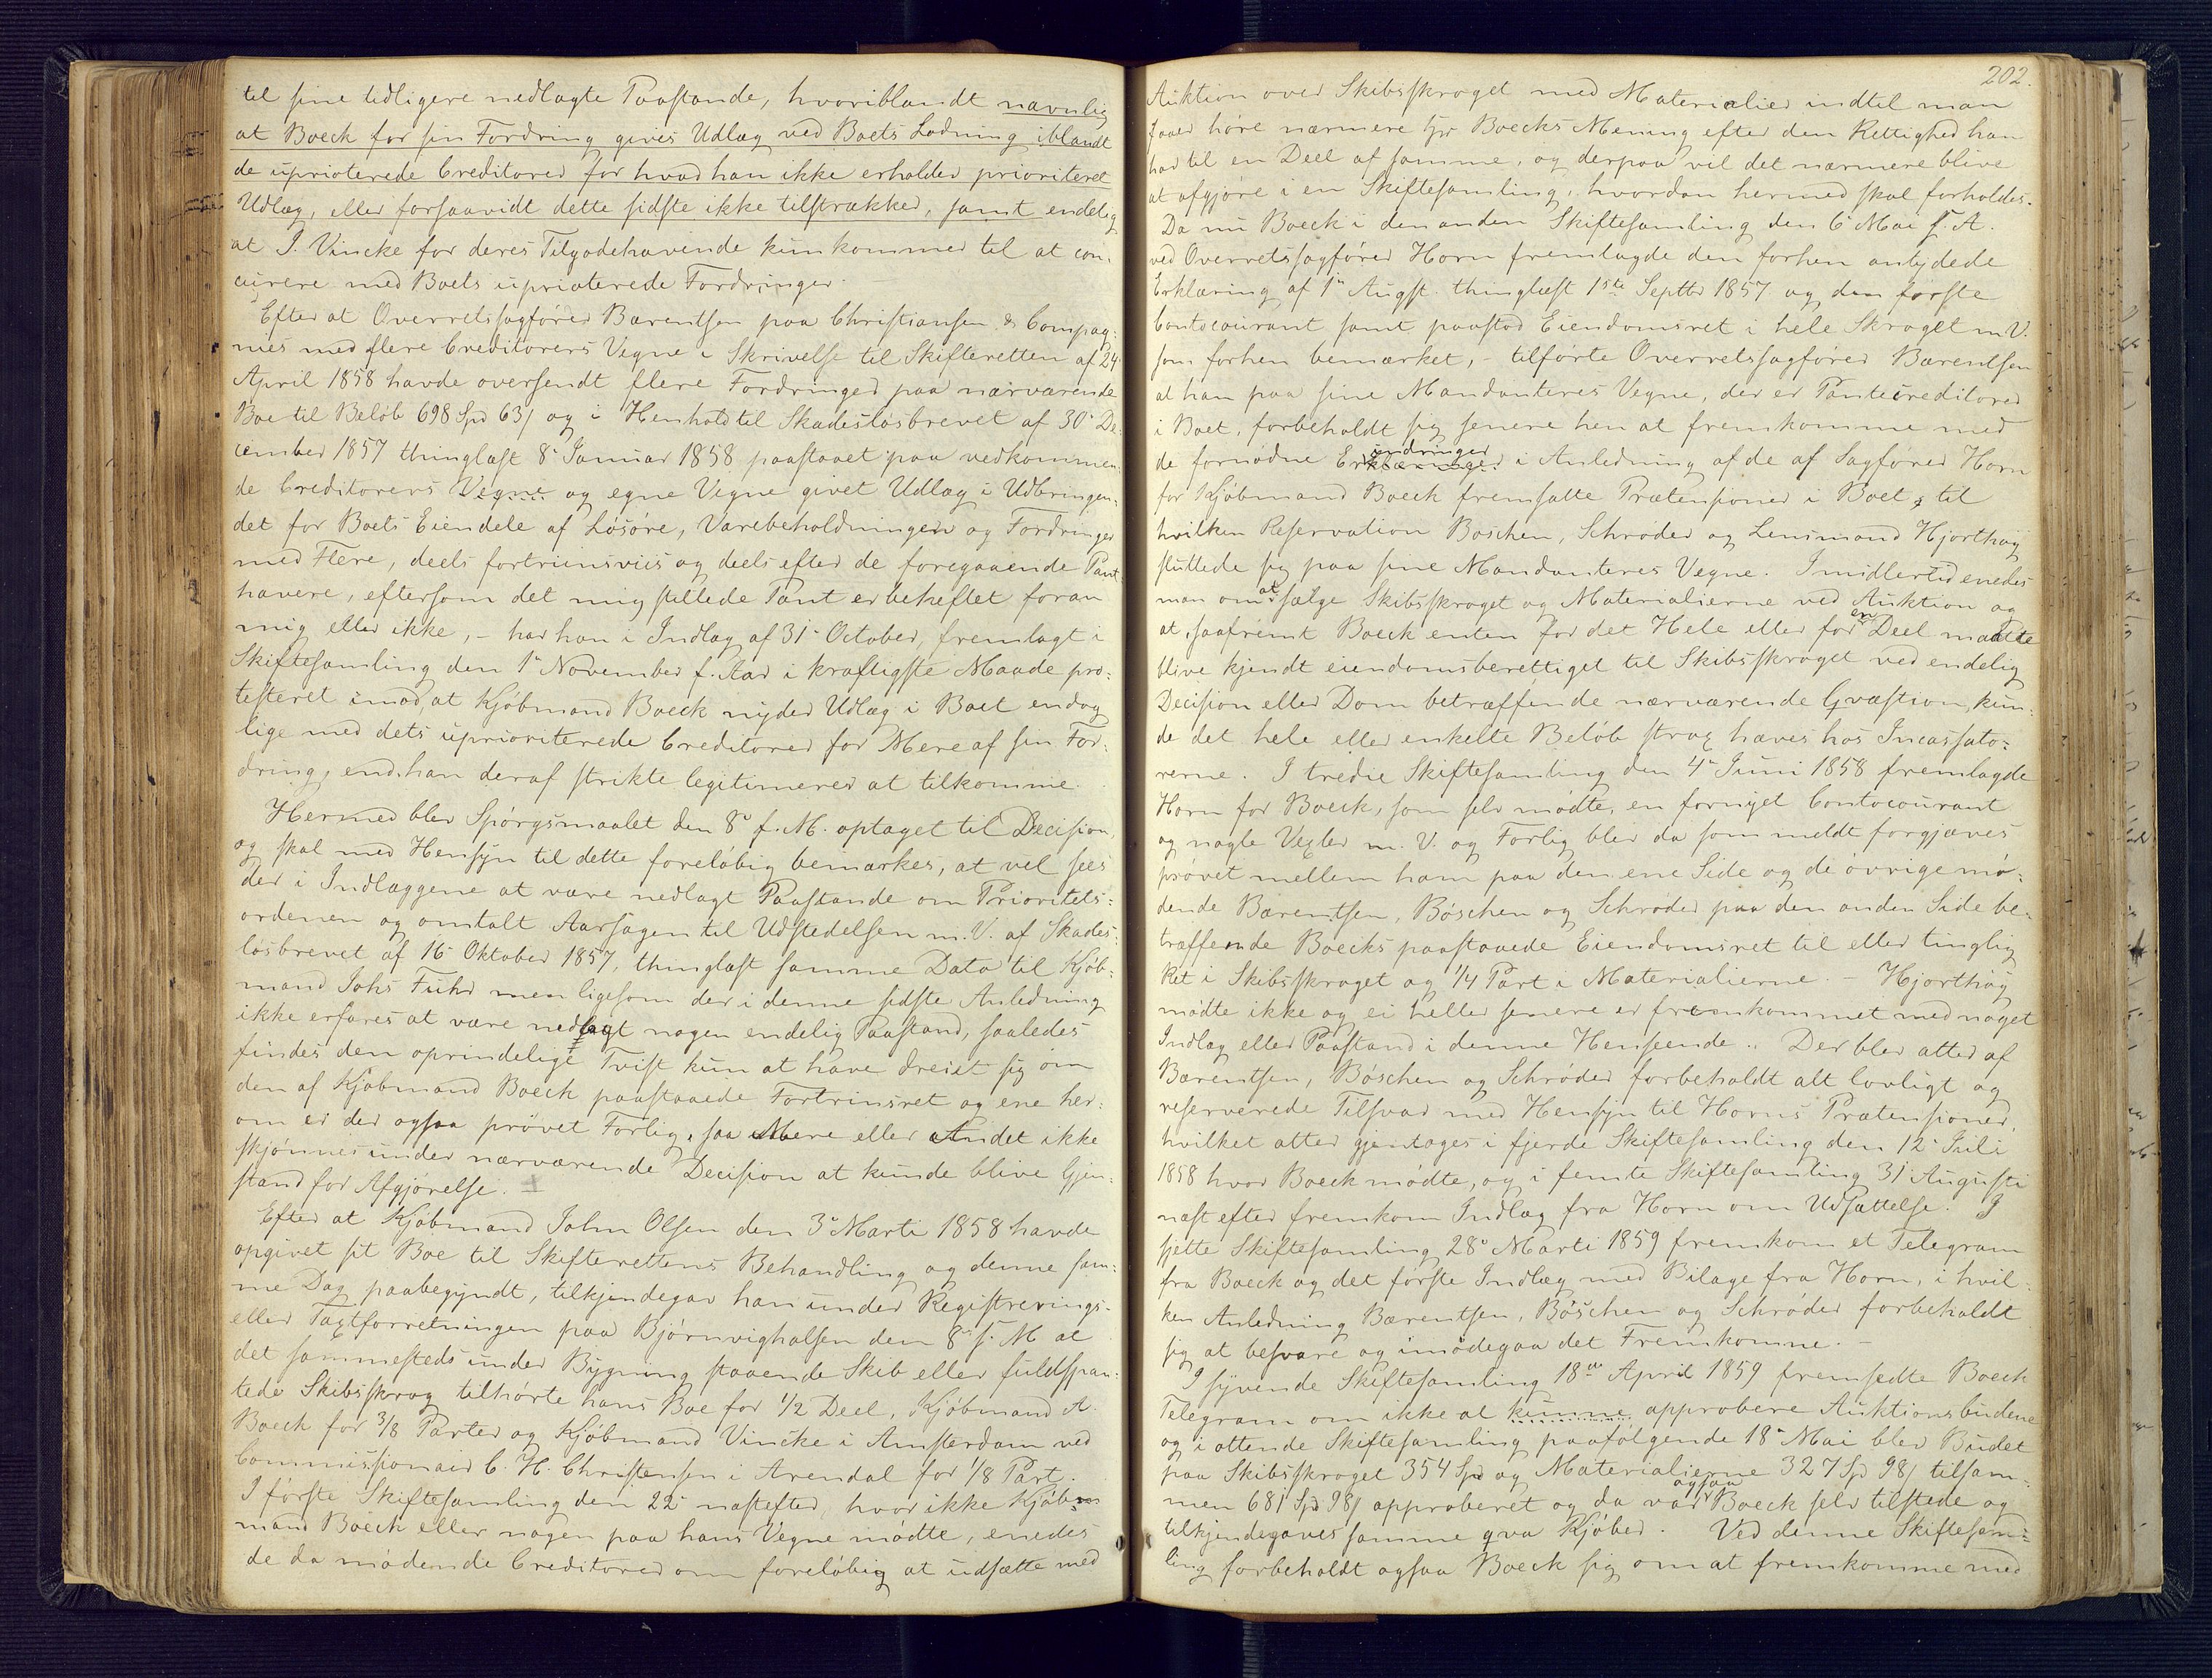 til sine tidligere nedlagte Paastande, hvoriblandt navnlig
at Boeck for sin Fordring gives Udlæg ved Boets Lodning iblandt
de uprioterede Creditorer for hvad han ikke erholder prioriteret
Udlæg, eller forsaavidt dette sidste ikke tilstrækker, samt endelig
at J. Vincke for deres Tilgodehavende kun kommer til at con-
curere med Boets uprioterede Fordringer.
Efter at Overretssagfører Bærentsen paa Christiansen & Compag-
nies med flere Creditorers Vegne i Skrivelse til Skifteretten af 24
April 1858 havde oversendt flere Fordringer paa nærværende
Boe til Beløb 698 Spd 63/ og i Henhold til Skadesløsbrevet af 30' De-
cember 1857 thinglæst 8' Januar 1858 paastaaet paa vedkommen-
de Creditorers Vegne og egne Vegne givet Udlæg i Udbringen-
det for Boets Eiendele af Løsøre, Varebeholdningen og Fordringer
med Flere, deels fortrinsviis og deels efter de foregaaende Pant-
havere, eftersom det mig stillede Pant er beheftet foran
mig eller ikke, - har han i Indlæg af 31' October, fremlagt i
Skiftesamling den 1' November f. Aar i kraftigste Maade pro-
testeret imod, at Kjøbmand Boeck nyder Udlæg i Boet endog
lige med dets uprioriterede Creditorer for Mere af sin For-
dring, end han deraf strikte legitimerer at tilkomme.
Hermed blev Spørgsmaalet den 8' f. M. optaget til Decision,
og skal med Hensyn til dette foreløbig bemærkes, at vel sees
der i Indlæggene at være nedlagt Paastande om Prioritets-
ordenen og omtalt Aarsagen til Udstedelsen m. V. af Skades-
løsbrevet af 16 Oktober 1857, thinglæst samme Dato til Kjøb-
mand Johs Fuhr men ligesom der i denne sidste Anledning
ikke erfares at være nedlagt nogen endelig Paastand, saaledes
findes den oprindelige Tvist kun at have dreiet sig om
den af Kjøbmand Boeck paastaaede Fortrinsret og ene her-
om er der ogsaa prövet Forlig, saa Mere eller Andet ikke
skjønnes under nærværende Decision at kunde blive Gjen-
stand for Afgjørelse.
Efter at Kjøbmand John Olsen den 3' Marti 1858 havde
opgivet sit Boe til Skifterettens Behandling og denne sam-
me Dag paabegyndt, tilkjendegav han under Registrerings-
eller Taxtforretningen paa Bjørnvighalsen den 8' s. M at
det sammesteds under Bygning staaende Skib eller fuldspan-
tede Skibsskrog tilhørte hans Boe for 1/2 Deel, Kjøbmand A.
Boeck for 3/8 Parter og Kjøbmand Vincke i Amsterdam ved
Commissionair C. H. Christensen i Arendal for 1/8 Part.
I første Skiftesamling den 22' næstefter, hvor ikke Kjøb-
mand Boeck eller nogen paa hans Vegne mødte, enedes
de da mødende Creditorer om foreløbig at udsætte med
202.
Auktion over Skibsskroget med Materialier indtil man
faaer høre nærmere Hr Boecks Mening efter den Rettighed han
har til en Deel af samme, og derpaa vil det nærmere blive
at afgjøre i en Skiftesamling, hvordan hermed skal forholdes.
Da nu Boeck i den anden Skiftesamling den 6' Mai f. A.
ved Overretssagfører Horn fremlagde den forhen antydede
Erklæring af 1' Augst. thinglæst 1ste Septbr 1857 og den første
Contocourant samt paastod Eiendomsret i hele Skroget m. V.
som forhen bemærket, - tilførte Overretssagfører Bærentsen
at han paa sine Mandanteres Vegne, der er Pantecreditorer
i Boet, forbeholdt sig senere hen at fremkomme med
indringer
de fornødne Erklæringer i Anledning af de af Sagfører Horn
for Kjøbmand Boeck fremsatte Prætensioner i Boet, til
hvilken Reservation Böschen, Schrøder og Lensmand Hjorthøy
sluttede sig paa sine Mandanteres Vegne. Imidlertid enedes
man om at sælge Skibsskroget og Materialierne ved Auktion og
at, saafremt Boeck enten for det Hele eller for en Deel maatte
blive kjendt eiendomsberettiget til Skibsskroget ved endelig
Decision eller Dom betræffende nærværende Qvæstion, kun-
de det hele eller enkelte Beløb strax hæves hos Incassato-
rerne. I tredie Skiftesamling den 4' Juni 1858 fremlagde
Horn for Boeck, som selv mødte, en fornyet Contocourant
og nogle Vexler m. V. og Forlig blev da som meldt forgjæves
prövet mellem ham paa den ene Side og de øvrige mø-
dende Bærentsen, Böschen og Schrøder paa den anden Side be-
træffende Boecks paastaaede Eiendomsret til eller tinglig
Ret i Skibsskroget og 1/4 Part i Materialierne. - Hjorthøy
mødte ikke og ei heller senere er fremkommet med noget
Indlæg eller Paastand i denne Henseende. Der blev atter af
Bærentsen, Böschen og Schrøder forbeholdt alt lovligt og
reserverede Tilsvar med Hensyn til Horns Prætensioner,
hvilket atter gjentages i fjerde Skiftesamling den 12' Juli
1858 hvor Boeck mødte, og i femte Skiftesamling 31' Augusti
næst efter fremkom Indlæg fra Horn om Udsættelse. I
sjette Skiftesamling 28' Marti 1859 fremkom et Telegram
fra Boeck og det første Indlæg med Bilage fra Horn, i hvil-
ken Anledning Bærentsen, Böschen og Schrøder forbeholdt
sig at besvare og imødegaa det Fremkomne. -
I syvende Skiftesamling 18de April 1859 fremsedte Boeck
Telegram om ikke at kunne approbere Auktionsbudene
og i ottende Skiftesamling paafølgende 18' Mai blev Budet
paa Skibsskroget 354 Spd og Materialierne 327 Spd 98/ tilsam-
men 681 Spd 98/ approberet og da var ogsaa Boeck selv tilstede og
tilkjendegaves samme qva Kjøber. Ved denne Skiftesam-
ling forbeholdt ogsaa Boeck sig om at fremkomme med